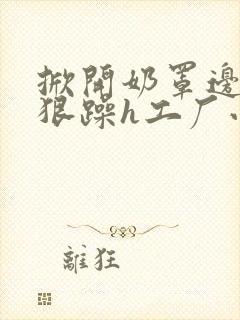 掀開奶罩邊
狠躁h工厂
離狂